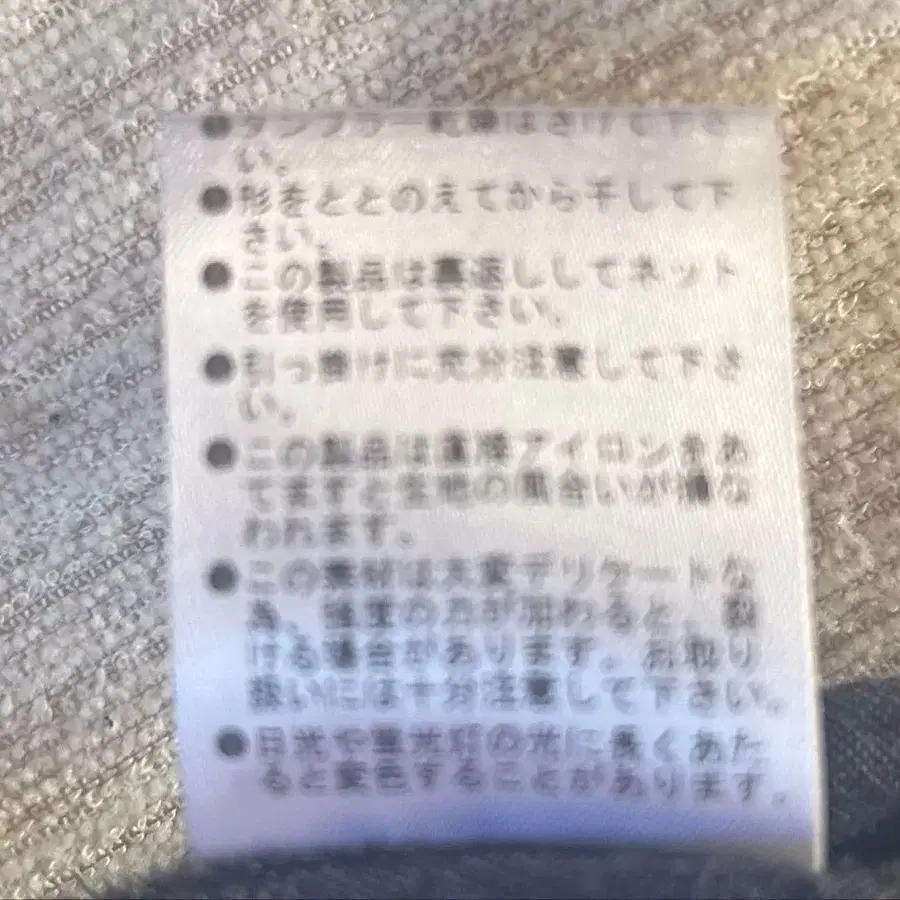 ●タンブラー乾燥はさけて下さ
い。
●形をととのえてから干して下
さい。
●この製品は裏返ししてネット
を使用して下さい。
●引っ掛けに充分注意して下さ
い。
●この製品は直接アイロンをあ
てますと生地の風合いが損な
われます。
●この素材は大変デリケートな
為、強度の力が加わると、裂
ける場合があります。お取り
扱いには十分注意して下さい。
●日光や蛍光灯の光に長くあた
ると変色することがあります。